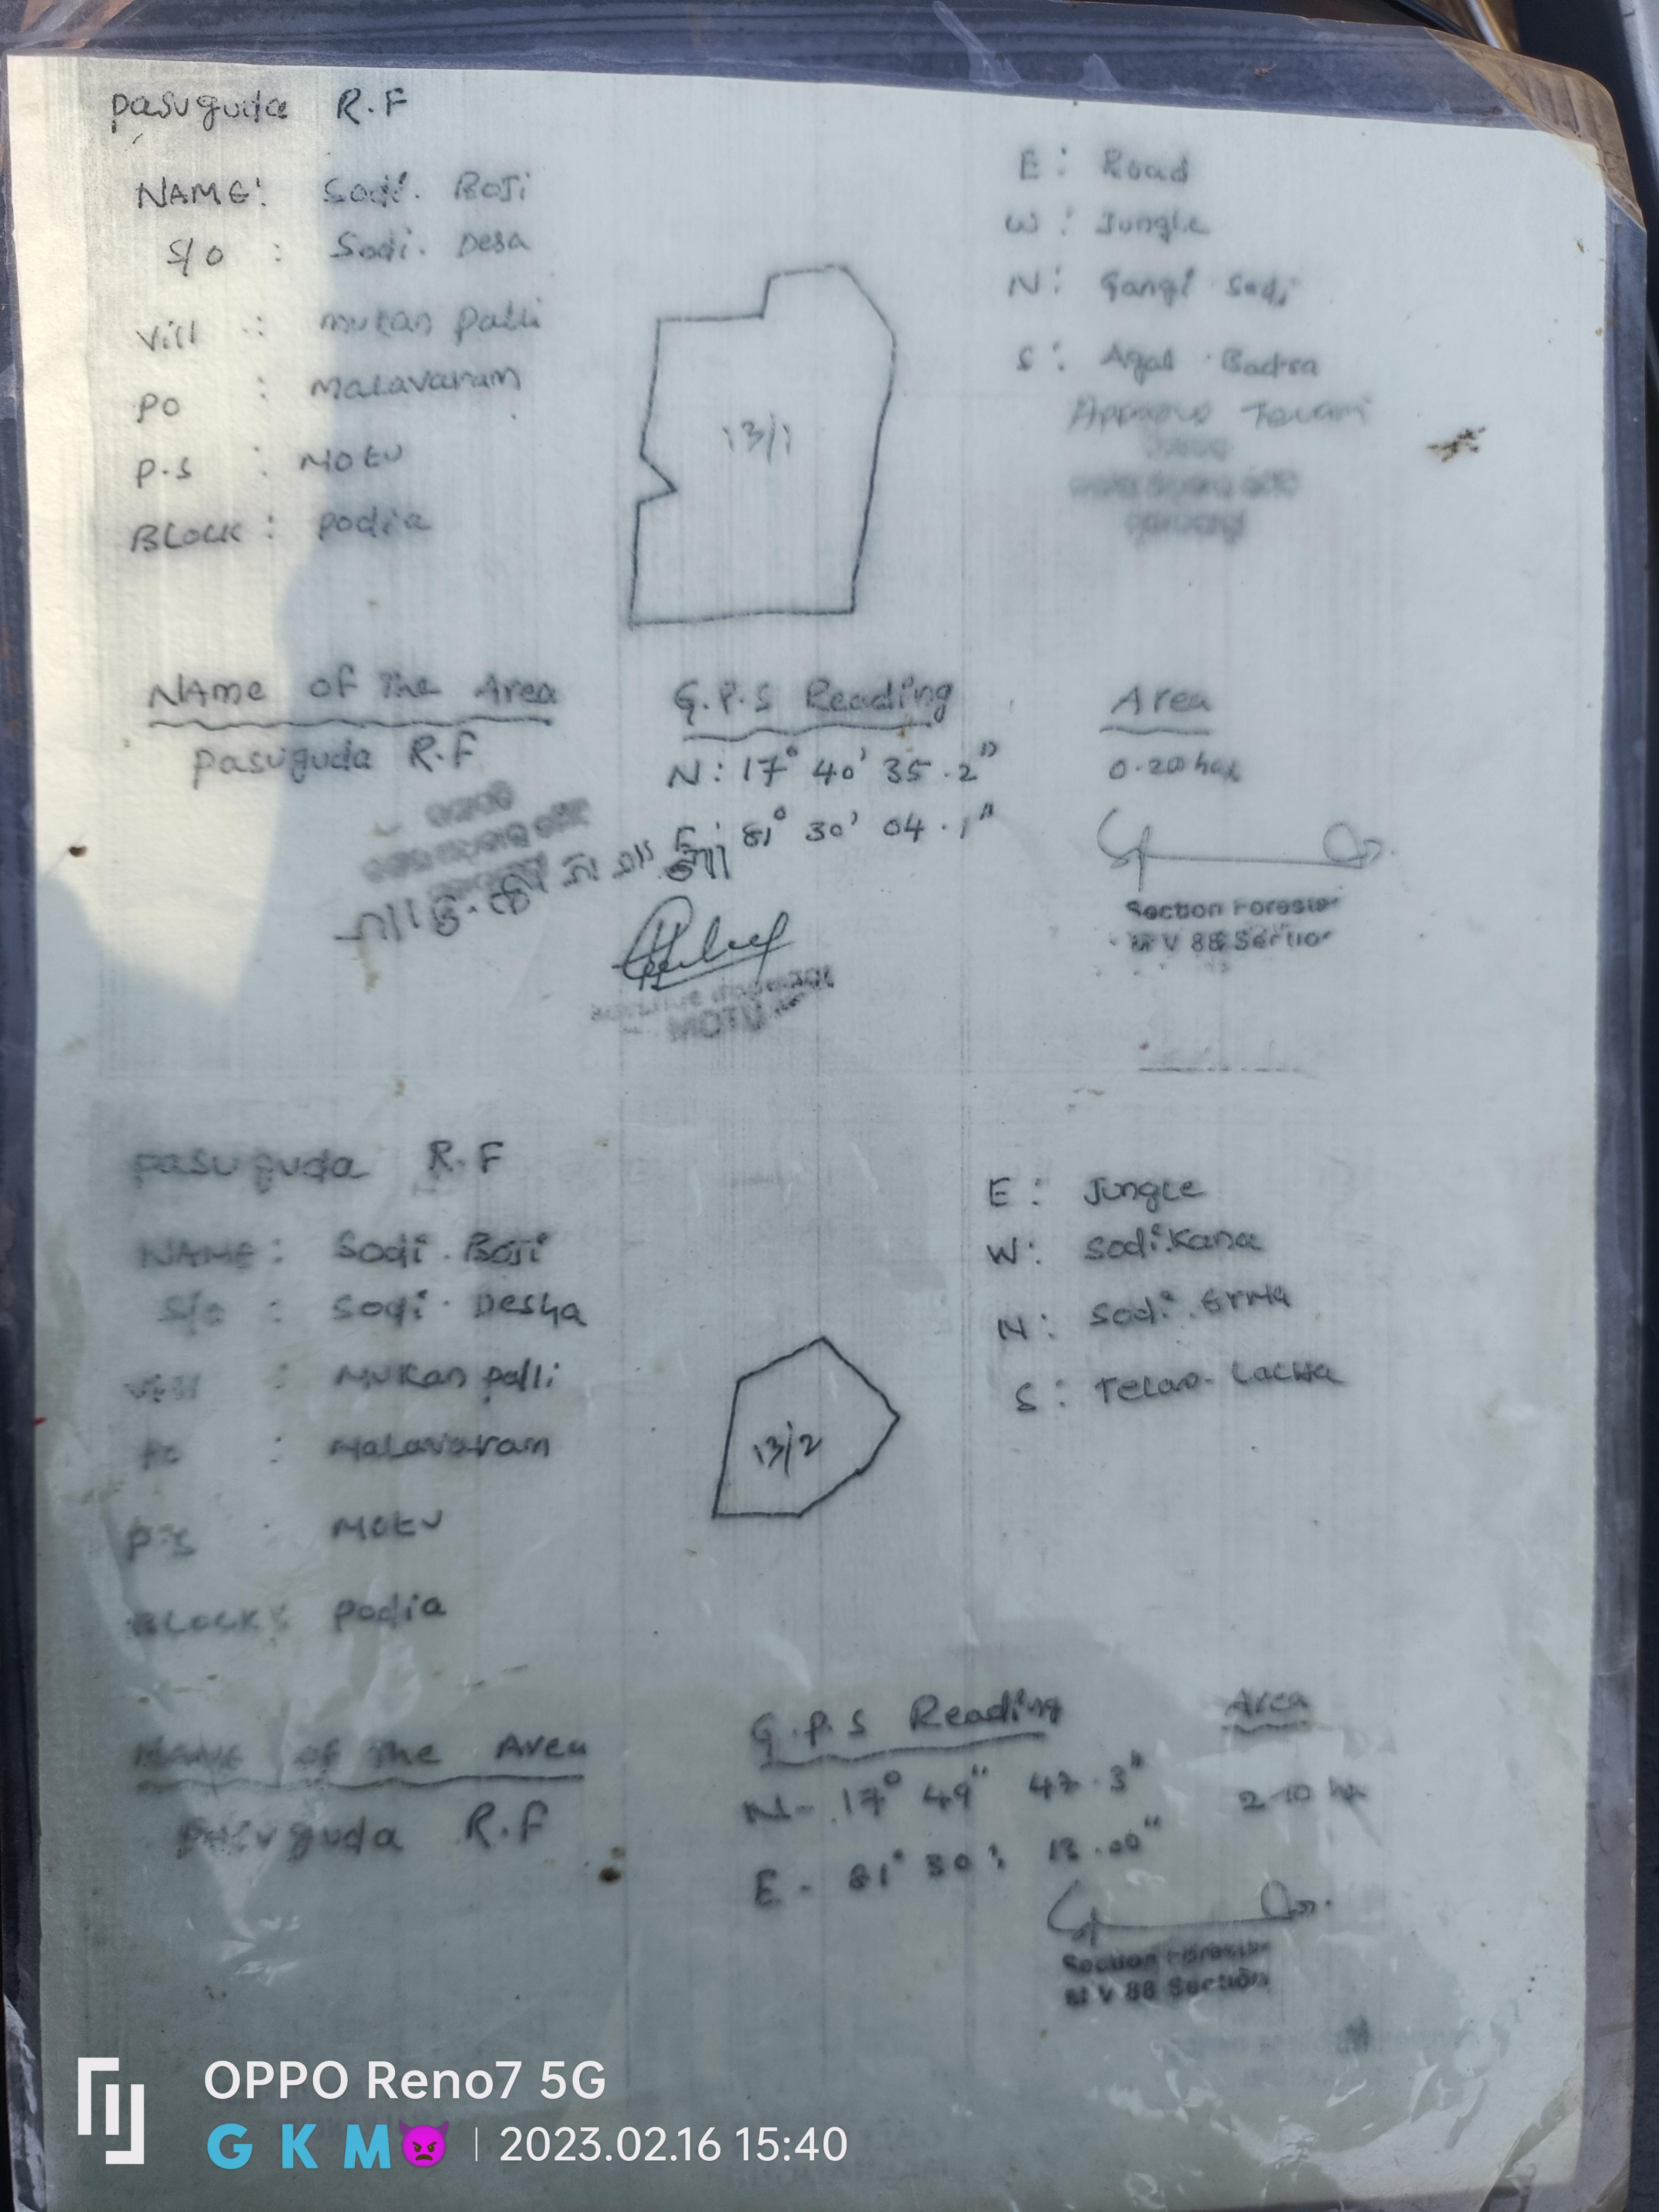 pasuguda R.F
NAME: Sodi. Boji
S/o : Sodi. Desa
Vill : mukan palli
PO : Malavaram
P.S : Motu
BLOCK: podia
E: Road
W: Jungle
N: Gangi Sodi
S: Badra
13/1
Name of The Area
pasuguda R.F
G.P.S Reading
N: 17° 40' 35.2"
E: 81° 30' 04.1"
Area
Section Forester
M V 88 Section
MOTU
pasuguda R.F
NAME: Sodi. Boji
S/o : Sodi. Desha
Vill : Mukan palli
Po : Malavaram
P.S : Motu
BLOCK: podia
E: Jungle
W: Sodi. Kana
N: Sodi.
S: Lacha
13/2
Name of The Area
pasuguda R.F
G.P.S Reading
N- 17° 49" 47.3"
E- 81° 30' 13.00"
Area
2-10 ha
Section Forester
M V 88 Section
OPPO Reno7 5G
G K M | 2023.02.16 15:40